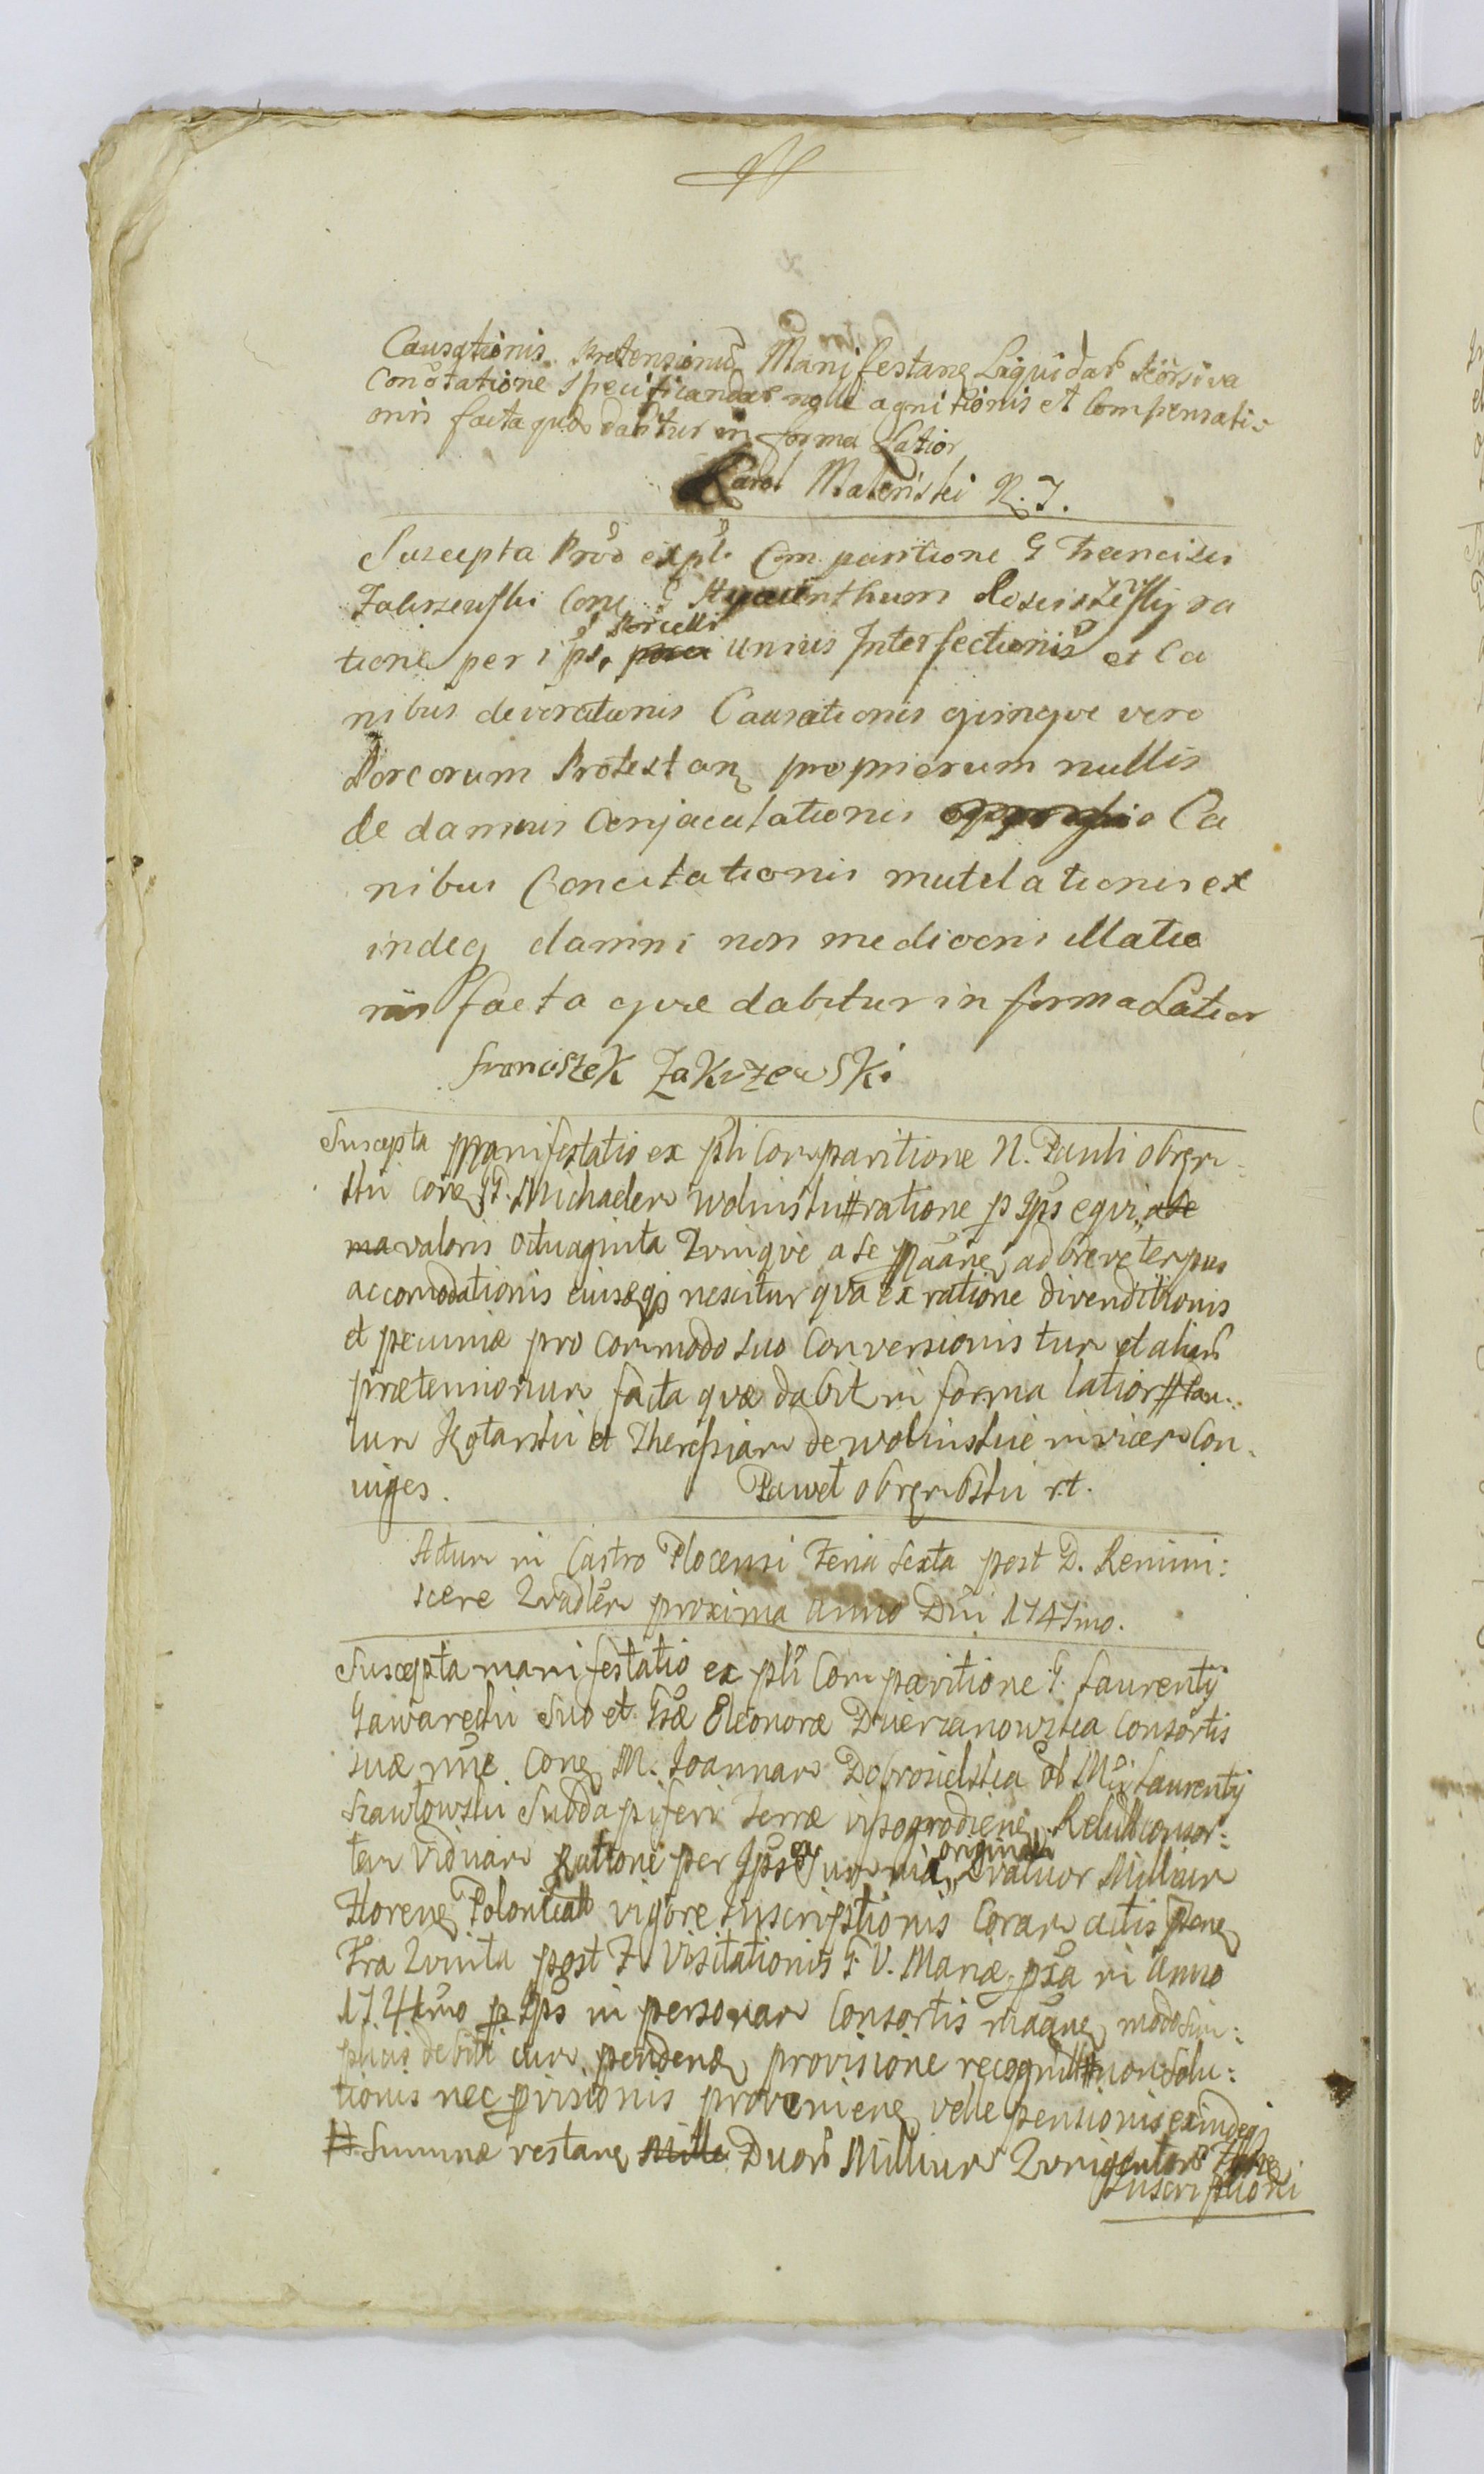 Causationis Pretensionũ Manifestanę Liquidaŕ seorsiva
Conotatione Specificandaŕ nolle agnitionis et Compensatio
onis facta quæ dabitur in forma Latior
Karol Mateński R. T.
Suscepta Prõ ex pli Comparitione G Francisci
Zakrzewski Conę G Hyacinthum Rosciszewskij ra
tione per ips, porcelli unius Interfectionis et Ca
nibus devorationis Causationis quinque vero
Porcorum Protestanę propriorum nullis
de damnis Conjaculationis Ca
nibus Concitationis mutilationis ex
indeq damni non mediocris illatio
nis facta quæ dabitur in forma Latior
franciszek Zakrzewski
Suscepta Manifestatio ex pli Comparitione N. Pauli obrem
ski Conę GG. Michaelem Wolinski # ratione p Ips equi
valoris octuaginta ase Maane, ad breve tempus
accomodationis eiusqȝ nescitur qua ex ratione divenditionis
et pecuniæ pro commodo suo Conversionis tum et aliarũ
prætensionum facta quæ dabit in forma latior #
lum et Theresiam de Wolinskie invicem Con-
iuges. Paweł obrembski r.t.
Actum in Castro Plocensi Feria Sexta post D. Remini:
scere Qvadler proxima Anno Dni 1747mo.
Suscepta manifestatio ex pli Comparitione G. Laurentij
Gawarecki Suo et Gsæ Eleonoræ Dzierzanowska Consortis
suæ nnie Conę M. Joannam Dobrosielska oi Mci Laurentij
Szawłowski Subdapiferi Terræ vissogrodiene, Relict consor:
tem Viduam Ratione per Ips ex Summa originali Qvatuor Millium
Florenę Polonical vigore Inscriptionis Coram actis
Fra Quinta post F. Visitationis B. V. Mariæ pxa in Anno
1741mo p Ips in personam Consortis maane, modo sim:
plicis debiti cum pendenę provisione recognitt # non Solu:
tionis nec provisionis provenienę velle pensionis exindeq
# Summæ restanę Mille Duorũ Millium Quingentorũ
Inscriptioni